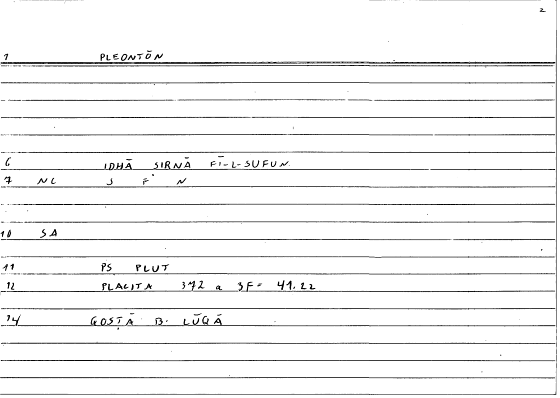 2
1 PLEONTŌN
6 IDHĀ SIRNĀ FĪ-L-SUFUN.
7 NL J F N
10 SA
11 PS PLUT
12 PLACITA 372 a 3F = 41.22
14 QOSṬĀ B. LŪQĀ